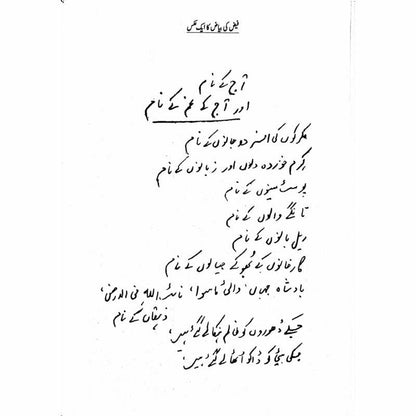 فیض کی بیاض کا ایک عکس
آج کے نام
اور آج کے غم کے نام
کلرکوں کی افسردہ جانوں کے نام
کرم خوردہ دلوں اور زبانوں کے نام
پوسٹ مینوں کے نام
تانگے والوں کے نام
ریل بانوں کے نام
کارخانوں کے بھوکے جیالوں کے نام
بادشاہ جہاں، والیٔ ماسوا، نائب اللہ فی الارض،
دہقاں کے نام
جسکے ڈھوروں کو ظالم ہنکا لے گئے ہیں،
جسکی بیٹی کو ڈاکو اٹھا لے گئے ہیں